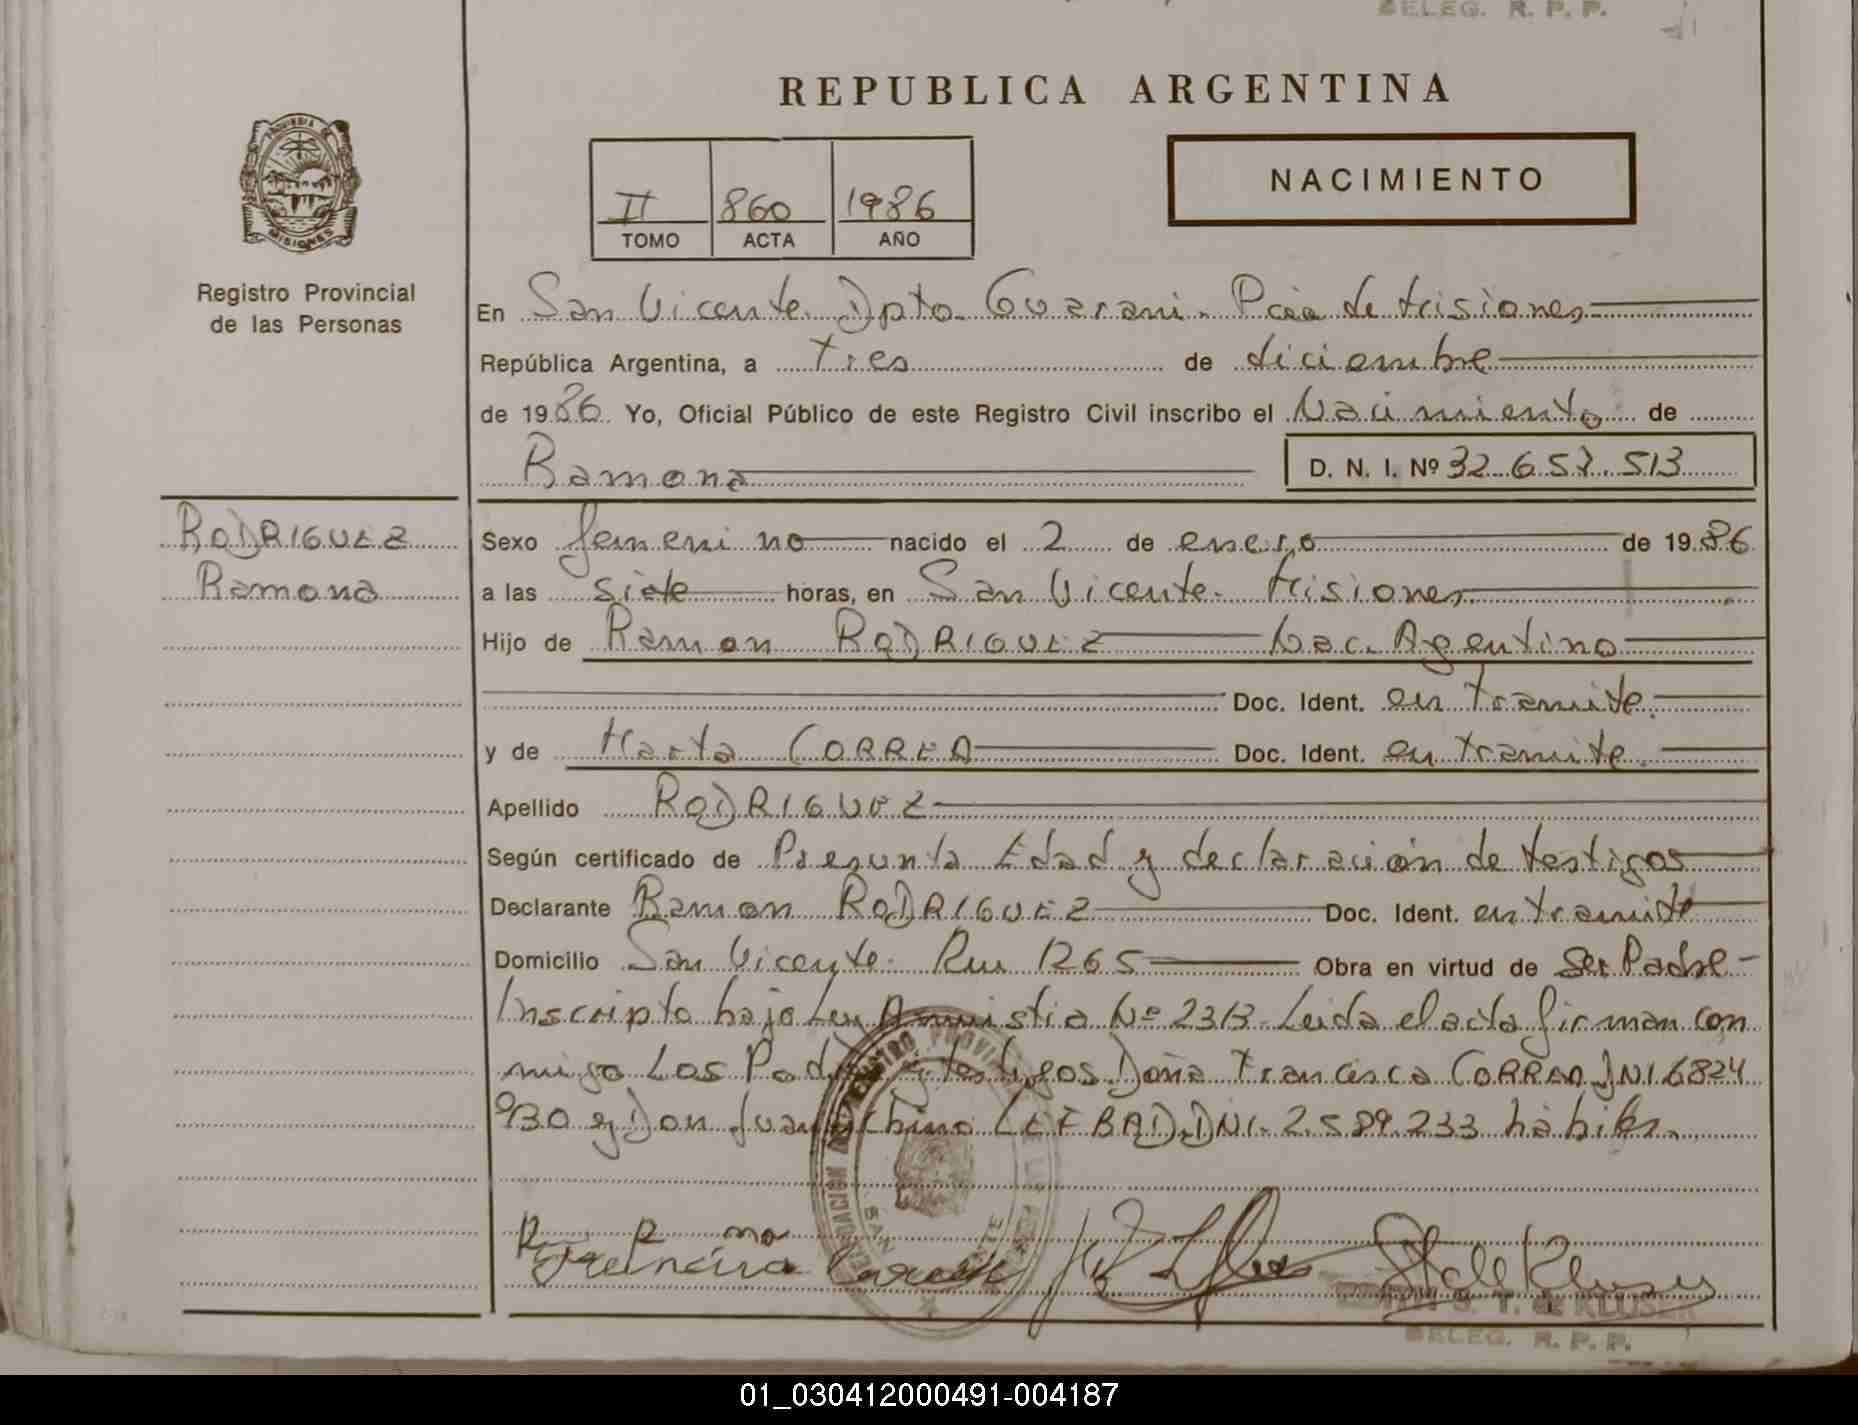 DELEG. R. P. P.
REPUBLICA ARGENTINA
PROVINCIA DE
MISIONES
Registro Provincial
de las Personas
II 860 1986
TOMO ACTA AÑO
NACIMIENTO
En San Vicente Dpto. Guarani. Pcia de Misiones
República Argentina, a tres de diciembre
de 1986. Yo, Oficial Público de este Registro Civil inscribo el Nacimiento de
Ramona D. N. I. Nº 32.657.513
RODRIGUEZ
Ramona
Sexo femenino nacido el 2 de enero de 1986
a las siete horas, en San Vicente. Misiones
Hijo de Ramon RODRIGUEZ Nac. Argentino
Doc. Ident. en tramite.
y de Marta CORREA Doc. Ident. en tramite.
Apellido RODRIGUEZ
Según certificado de Presunta Edad y declaración de testigos
Declarante Ramon RODRIGUEZ Doc. Ident. en tramite
Domicilio San Vicente. Km 1265 Obra en virtud de Ser Padre -
Inscripto bajo Ley Amnistia Nº 2313. Leida el acta firman con
migo Los Padres y testigos Doña Francisca CORREA DNI 6824
930 y Don Juan DNI. 2.589.233 hàbiles.
Francisca Correa
S. T. de KLUSER
DELEG. R. P. P.
01_030412000491-004187